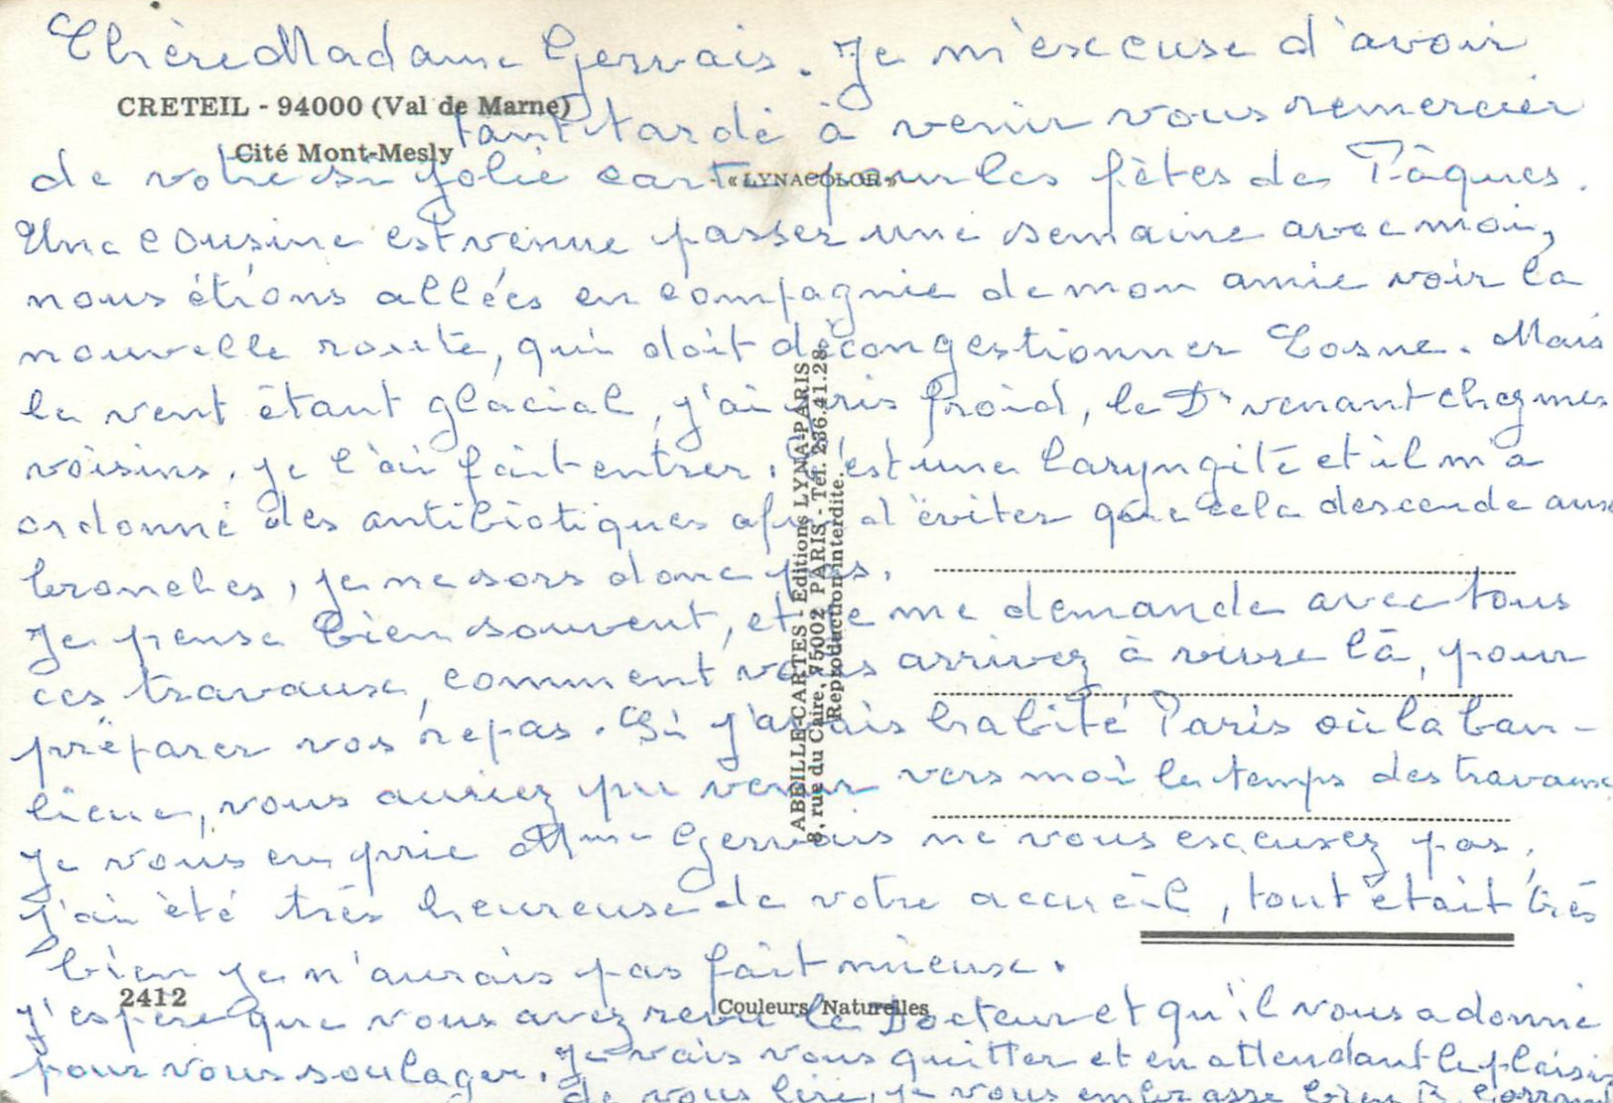 Chère Madame Gervais. Je m'excuse d'avoir
CRETEIL - 94000 (Val de Marne)
tant tardé à venir vous remercier
Cité Mont-Mesly
de votre si jolie carte pour les fêtes de Pâques.
- « LYNACOLOR »
Une cousine est venue passer une semaine avec moi,
nous étions allées en compagnie de mon amie voir la
nouvelle route, qui doit décongestionner Cosne. Mais
le vent étant glacial, j'ai pris froid, le Dr venant chez mes
voisins, je l'ai fait entrer. C'est une laryngite et il m'a
ordonné des antibiotiques afin d'éviter que cela descende aux
bronches, je ne sors donc pas.
Je pense bien souvent, et je me demande avec tous
ces travaux, comment vous arrivez à vivre là, pour
préparer vos repas. Si j'avais habité Paris où la ban-
lieue, vous auriez pu venir vers moi le temps des travaux
Je vous en prie Mme Gervais ne vous excusez pas,
j'ai été très heureuse de votre accueil, tout était très
bien je n'aurais pas fait mieux.
2412
Couleurs Naturelles
J'espère que vous avez revu le Docteur et qu'il vous a donné
pour vous soulager. Je vais vous quitter et en attendant le plaisir
de vous lire, je vous embrasse bien
ABEILLE-CARTES - Editions LYNA-PARIS
8, rue du Caire, 75002 PARIS - Tél. 236.41.28
Reproduction interdite.